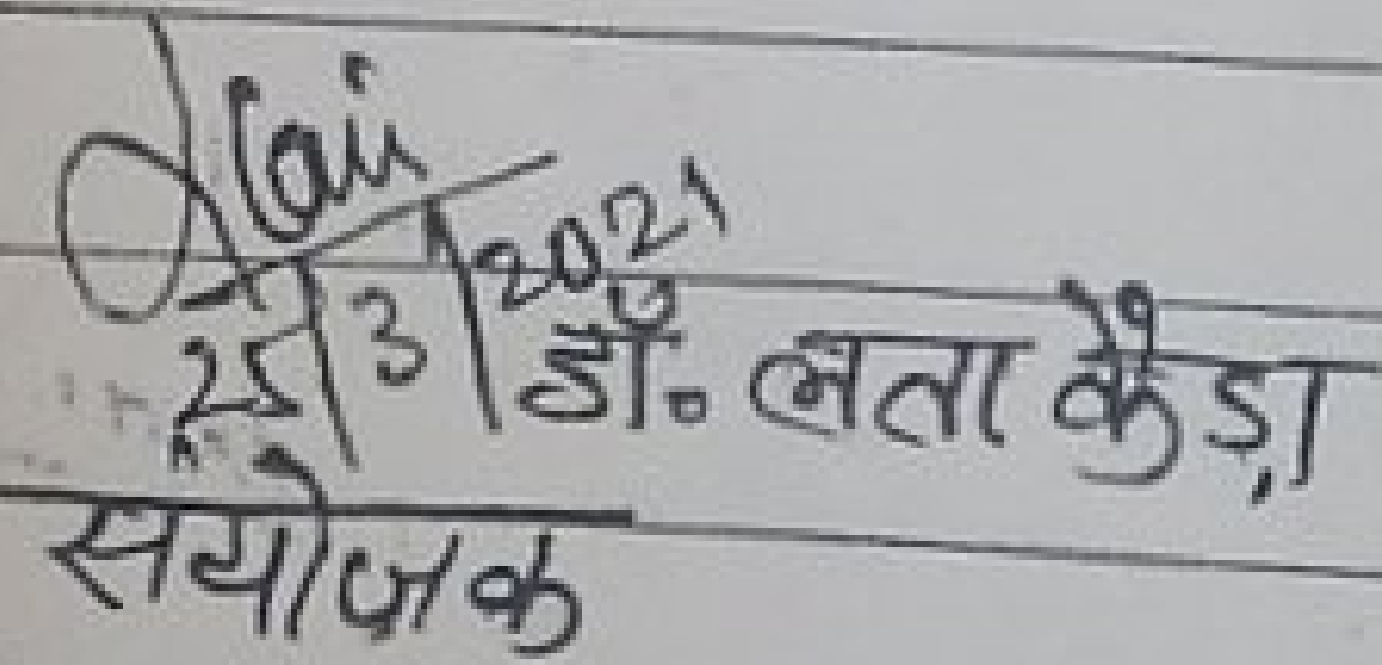 25/3/2021
डॉ. लता कैड़ा
सयोजक